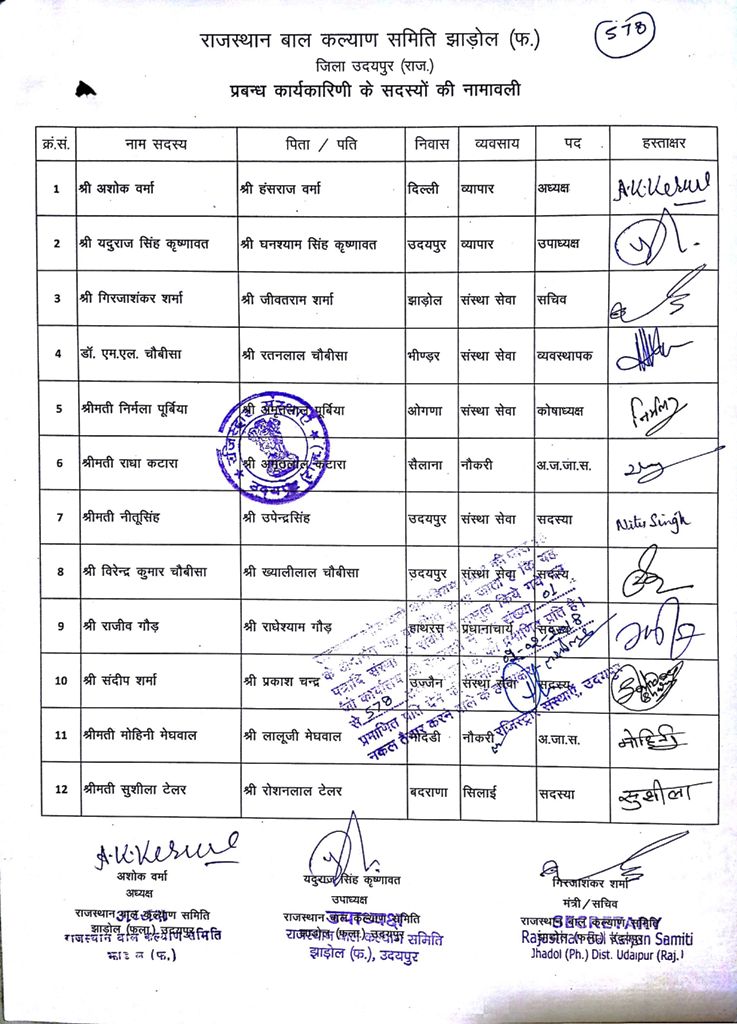 578
राजस्थान बाल कल्याण समिति झाड़ोल (फ.)
जिला उदयपुर (राज.)
प्रबन्ध कार्यकारिणी के सदस्यों की नामावली
क्रं.सं. नाम सदस्य पिता / पति निवास व्यवसाय पद हस्ताक्षर
1 श्री अशोक वर्मा श्री हंसराज वर्मा दिल्ली व्यापार अध्यक्ष
2 श्री यदुराज सिंह कृष्णावत श्री घनश्याम सिंह कृष्णावत उदयपुर व्यापार उपाध्यक्ष
3 श्री गिरजाशंकर शर्मा श्री जीवतराम शर्मा झाड़ोल संस्था सेवा सचिव
4 डॉ. एम.एल. चौबीसा श्री रतनलाल चौबीसा भीण्डर संस्था सेवा व्यवस्थापक
5 श्रीमती निर्मला पूर्बिया श्री अमृतलाल पूर्बिया ओगणा संस्था सेवा कोषाध्यक्ष निर्मला
6 श्रीमती राधा कटारा श्री कटारा सैलाना नौकरी अ.ज.जा.स.
7 श्रीमती नीतूसिंह श्री उपेन्द्रसिंह उदयपुर संस्था सेवा सदस्या Nitu Singh
8 श्री विरेन्द्र कुमार चौबीसा श्री ख्यालीलाल चौबीसा उदयपुर संस्था सेवा सदस्य
9 श्री राजीव गौड़ श्री राधेश्याम गौड़ हाथरस प्रधानाचार्य सदस्य
10 श्री संदीप शर्मा श्री प्रकाश चन्द्र उज्जैन संस्था सेवा सदस्य
11 श्रीमती मोहिनी मेघवाल श्री लालूजी मेघवाल नौकरी अ.जा.स. मोहिनी
12 श्रीमती सुशीला टेलर श्री रोशनलाल टेलर बदराणा सिलाई सदस्या सुशीला
से 578
रजिस्ट्रार संस्थाएं, उदयपुर
अशोक वर्मा
अध्यक्ष
राजस्थान बाल कल्याण समिति
झाड़ोल (फला.) उदयपुर
राजस्थान बाल कल्याण समिति
यदुराज सिंह कृष्णावत
उपाध्यक्ष
राजस्थान बाल कल्याण समिति
झाड़ोल (फला.) उदयपुर
राजस्थान बाल कल्याण समिति
झाड़ोल (फ.), उदयपुर
गिरजाशंकर शर्मा
मंत्री / सचिव
राजस्थान बाल कल्याण समिति
SECRETARY
झाड़ोल (फला.) उदयपुर
Rajasthan Bal Kalyan Samiti
Jhadol (Ph.) Dist. Udaipur (Raj.)